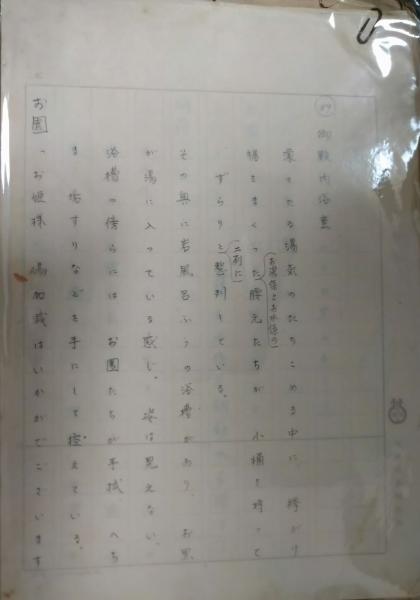 御殿内浴室
濛々たる湯気のたちこめる中に、襷がけ
裾をまくった腰元たちが、小桶を持って
(お湯係とお水係の
二列に)
ずらりと整列している。
その奥に岩風呂ふうの浴槽があり、お里
が湯に入っている感じ。姿は見えない。
浴槽の傍らにはお園たちが手拭、へち
ま、垢すりなどを手にして控えている。
お園「お姫様、湯加減はいかがでございます